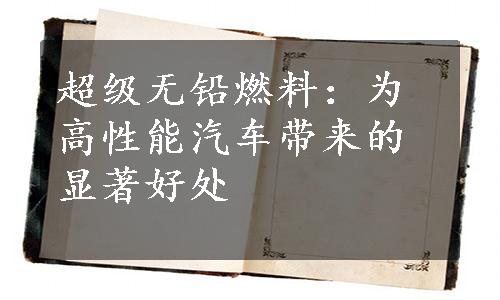 超级无铅燃料：为
高性能汽车带来的
显著好处